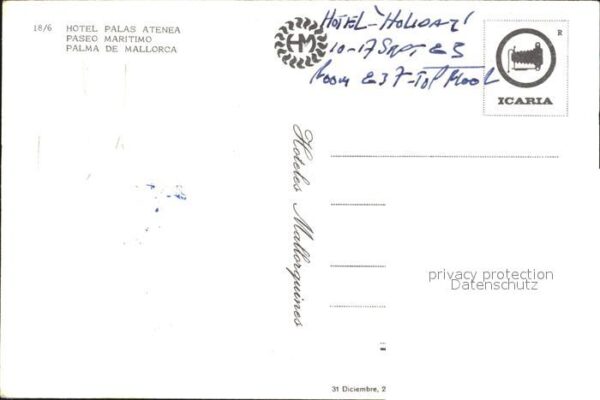 18/6 HOTEL PALAS ATENEA
PASEO MARITIMO
PALMA DE MALLORCA
HM
HOTEL 'HOLIDAY'
10-17 SEPT 63
Room 637-TOP FLOOR
R
ICARIA
Hoteles Mallorquines
privacy protection
Datenschutz
31 Diciembre, 2